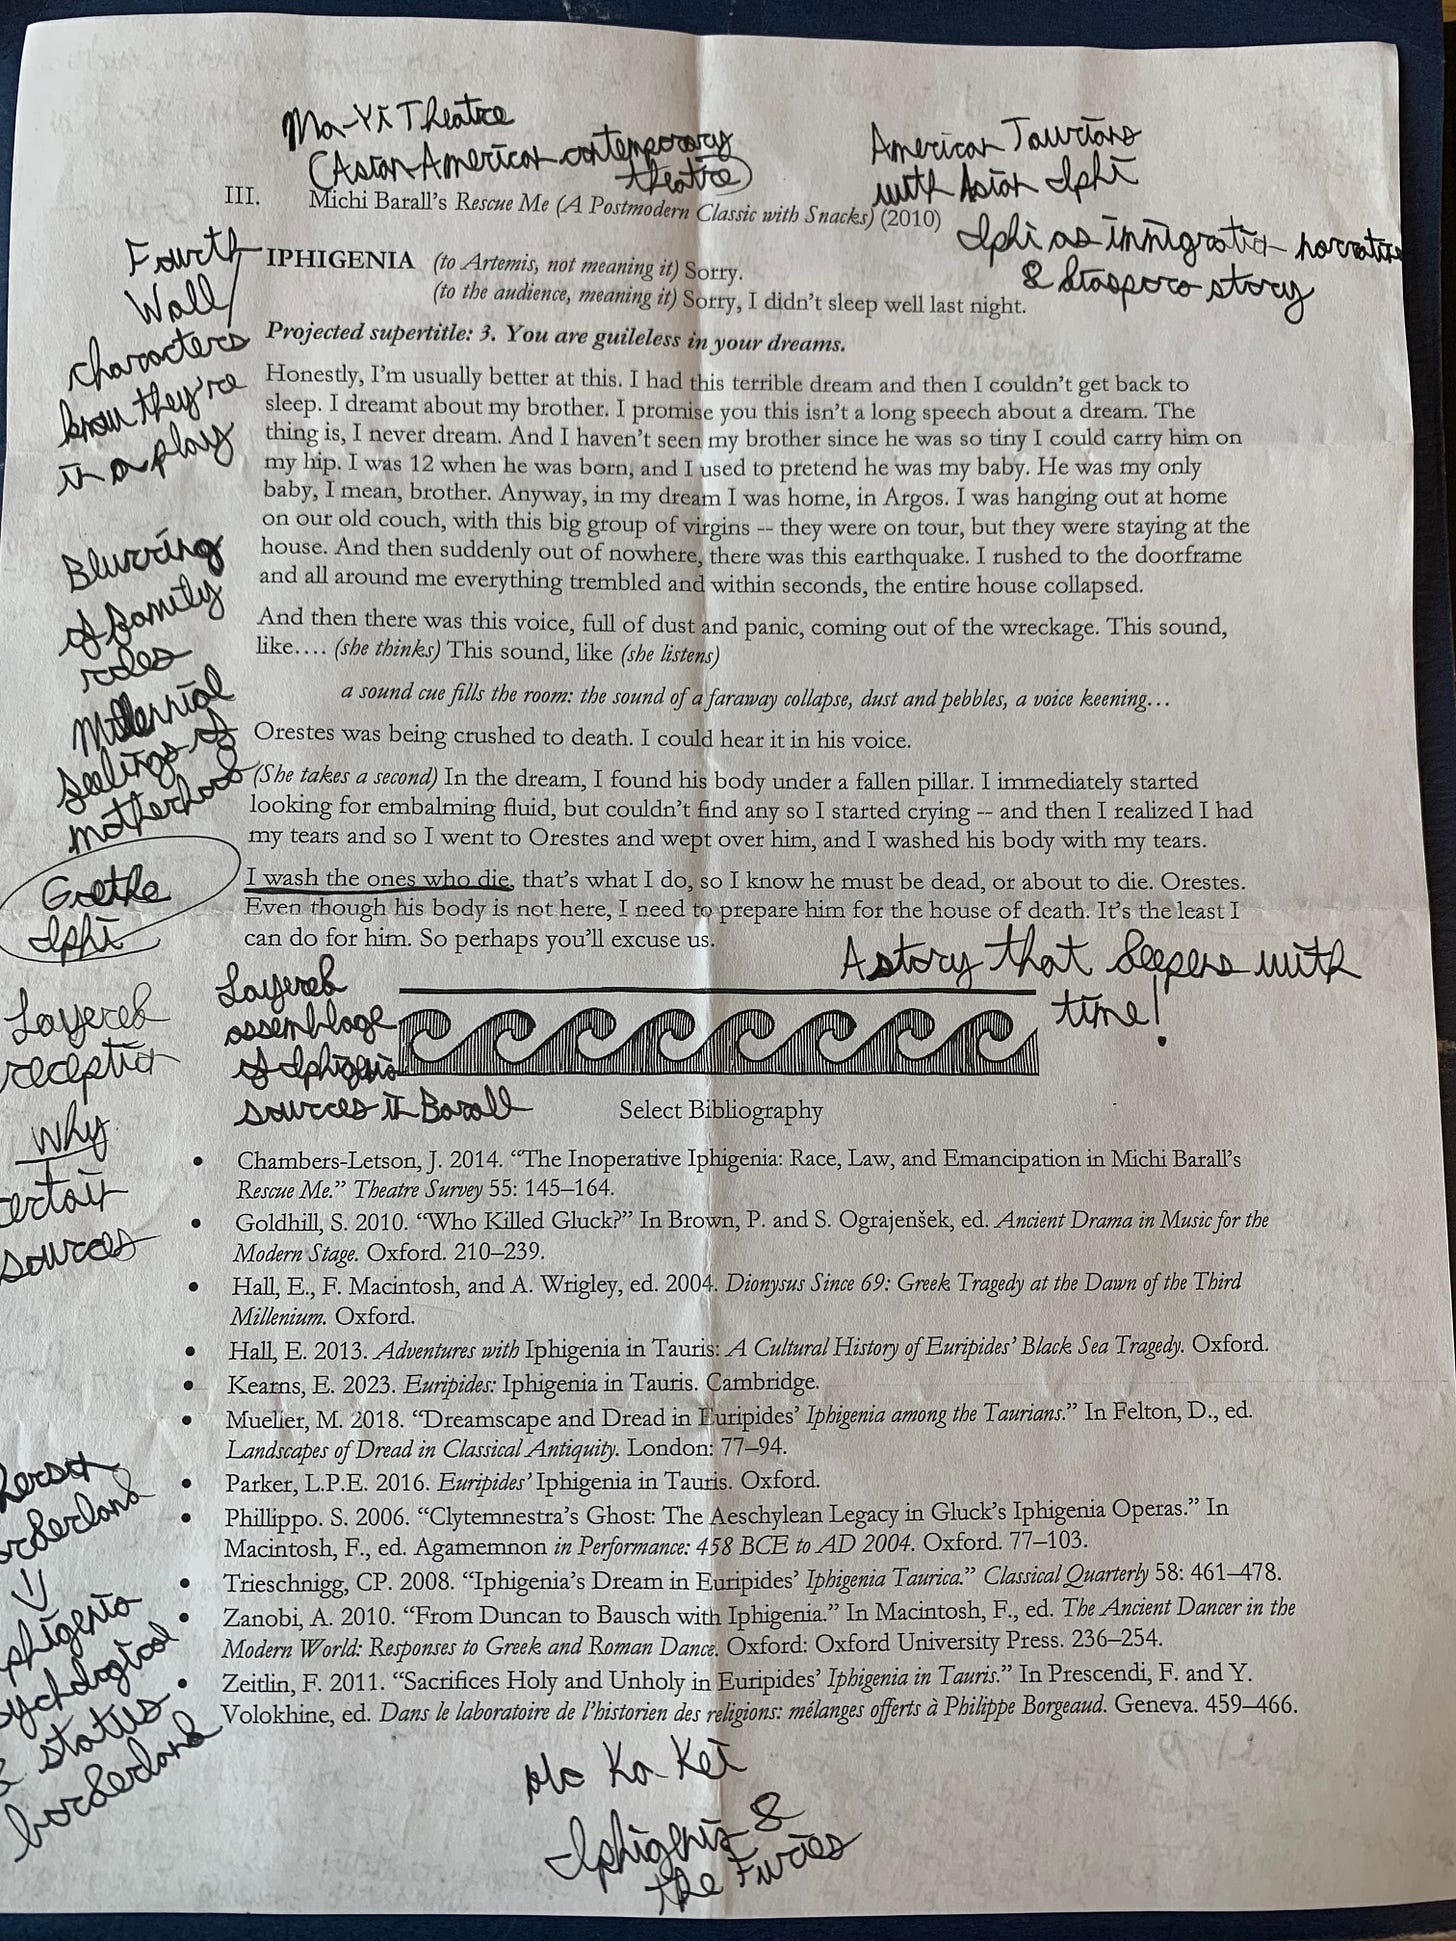 Ma-Yi Theatre
(Asian American contemporary
theatre)
American Taurians
with Asian Iphi
Iphi as immigration narrative
& diaspora story
III. Michi Barall's Rescue Me (A Postmodern Classic with Snacks) (2010)
Fourth
Wall/
characters
know they're
in a play
IPHIGENIA (to Artemis, not meaning it) Sorry.
(to the audience, meaning it) Sorry, I didn't sleep well last night.
Projected supertitle: 3. You are guileless in your dreams.
Honestly, I'm usually better at this. I had this terrible dream and then I couldn't get back to
sleep. I dreamt about my brother. I promise you this isn't a long speech about a dream. The
thing is, I never dream. And I haven't seen my brother since he was so tiny I could carry him on
my hip. I was 12 when he was born, and I used to pretend he was my baby. He was my only
baby, I mean, brother. Anyway, in my dream I was home, in Argos. I was hanging out at home
on our old couch, with this big group of virgins -- they were on tour, but they were staying at the
house. And then suddenly out of nowhere, there was this earthquake. I rushed to the doorframe
and all around me everything trembled and within seconds, the entire house collapsed.
Blurring
of family
roles
Millennial
feelings of
motherhood
And then there was this voice, full of dust and panic, coming out of the wreckage. This sound,
like…. (she thinks) This sound, like (she listens)
a sound cue fills the room: the sound of a faraway collapse, dust and pebbles, a voice keening…
Orestes was being crushed to death. I could hear it in his voice.
(She takes a second) In the dream, I found his body under a fallen pillar. I immediately started
looking for embalming fluid, but couldn't find any so I started crying -- and then I realized I had
my tears and so I went to Orestes and wept over him, and I washed his body with my tears.
Goethe
Iphi
I wash the ones who die, that's what I do, so I know he must be dead, or about to die. Orestes.
Even though his body is not here, I need to prepare him for the house of death. It's the least I
can do for him. So perhaps you'll excuse us.
A story that deepens with
time!
Layered
reception
Why
certain
sources
Layered
assemblage
of Iphigenia
sources in Barall
Select Bibliography
• Chambers-Letson, J. 2014. "The Inoperative Iphigenia: Race, Law, and Emancipation in Michi Barall's
Rescue Me." Theatre Survey 55: 145–164.
• Goldhill, S. 2010. "Who Killed Gluck?" In Brown, P. and S. Ograjenšek, ed. Ancient Drama in Music for the
Modern Stage. Oxford. 210–239.
• Hall, E., F. Macintosh, and A. Wrigley, ed. 2004. Dionysus Since 69: Greek Tragedy at the Dawn of the Third
Millenium. Oxford.
• Hall, E. 2013. Adventures with Iphigenia in Tauris: A Cultural History of Euripides' Black Sea Tragedy. Oxford.
• Kearns, E. 2023. Euripides: Iphigenia in Tauris. Cambridge.
• Muelier, M. 2018. "Dreamscape and Dread in Euripides' Iphigenia among the Taurians." In Felton, D., ed.
Landscapes of Dread in Classical Antiquity. London: 77–94.
• Parker, L.P.E. 2016. Euripides' Iphigenia in Tauris. Oxford.
• Phillippo. S. 2006. "Clytemnestra's Ghost: The Aeschylean Legacy in Gluck's Iphigenia Operas." In
Macintosh, F., ed. Agamemnon in Performance: 458 BCE to AD 2004. Oxford. 77–103.
• Trieschnigg, CP. 2008. "Iphigenia's Dream in Euripides' Iphigenia Taurica." Classical Quarterly 58: 461–478.
• Zanobi, A. 2010. "From Duncan to Bausch with Iphigenia." In Macintosh, F., ed. The Ancient Dancer in the
Modern World: Responses to Greek and Roman Dance. Oxford: Oxford University Press. 236–254.
• Zeitlin, F. 2011. "Sacrifices Holy and Unholy in Euripides' Iphigenia in Tauris." In Prescendi, F. and Y.
Volokhine, ed. Dans le laboratoire de l'historien des religions: mélanges offerts à Philippe Borgeaud. Geneva. 459–466.
borderland
Iphigenia
psychological
& status
borderland
Ka Kei
Iphigenia &
the Furies